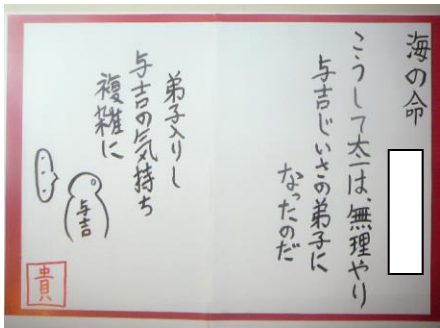 海の命
こうして太一は、無理やり
与吉じいさの弟子に
なったのだ
弟子入りし
与吉の気持ち
複雑に
・・・
与吉
貴